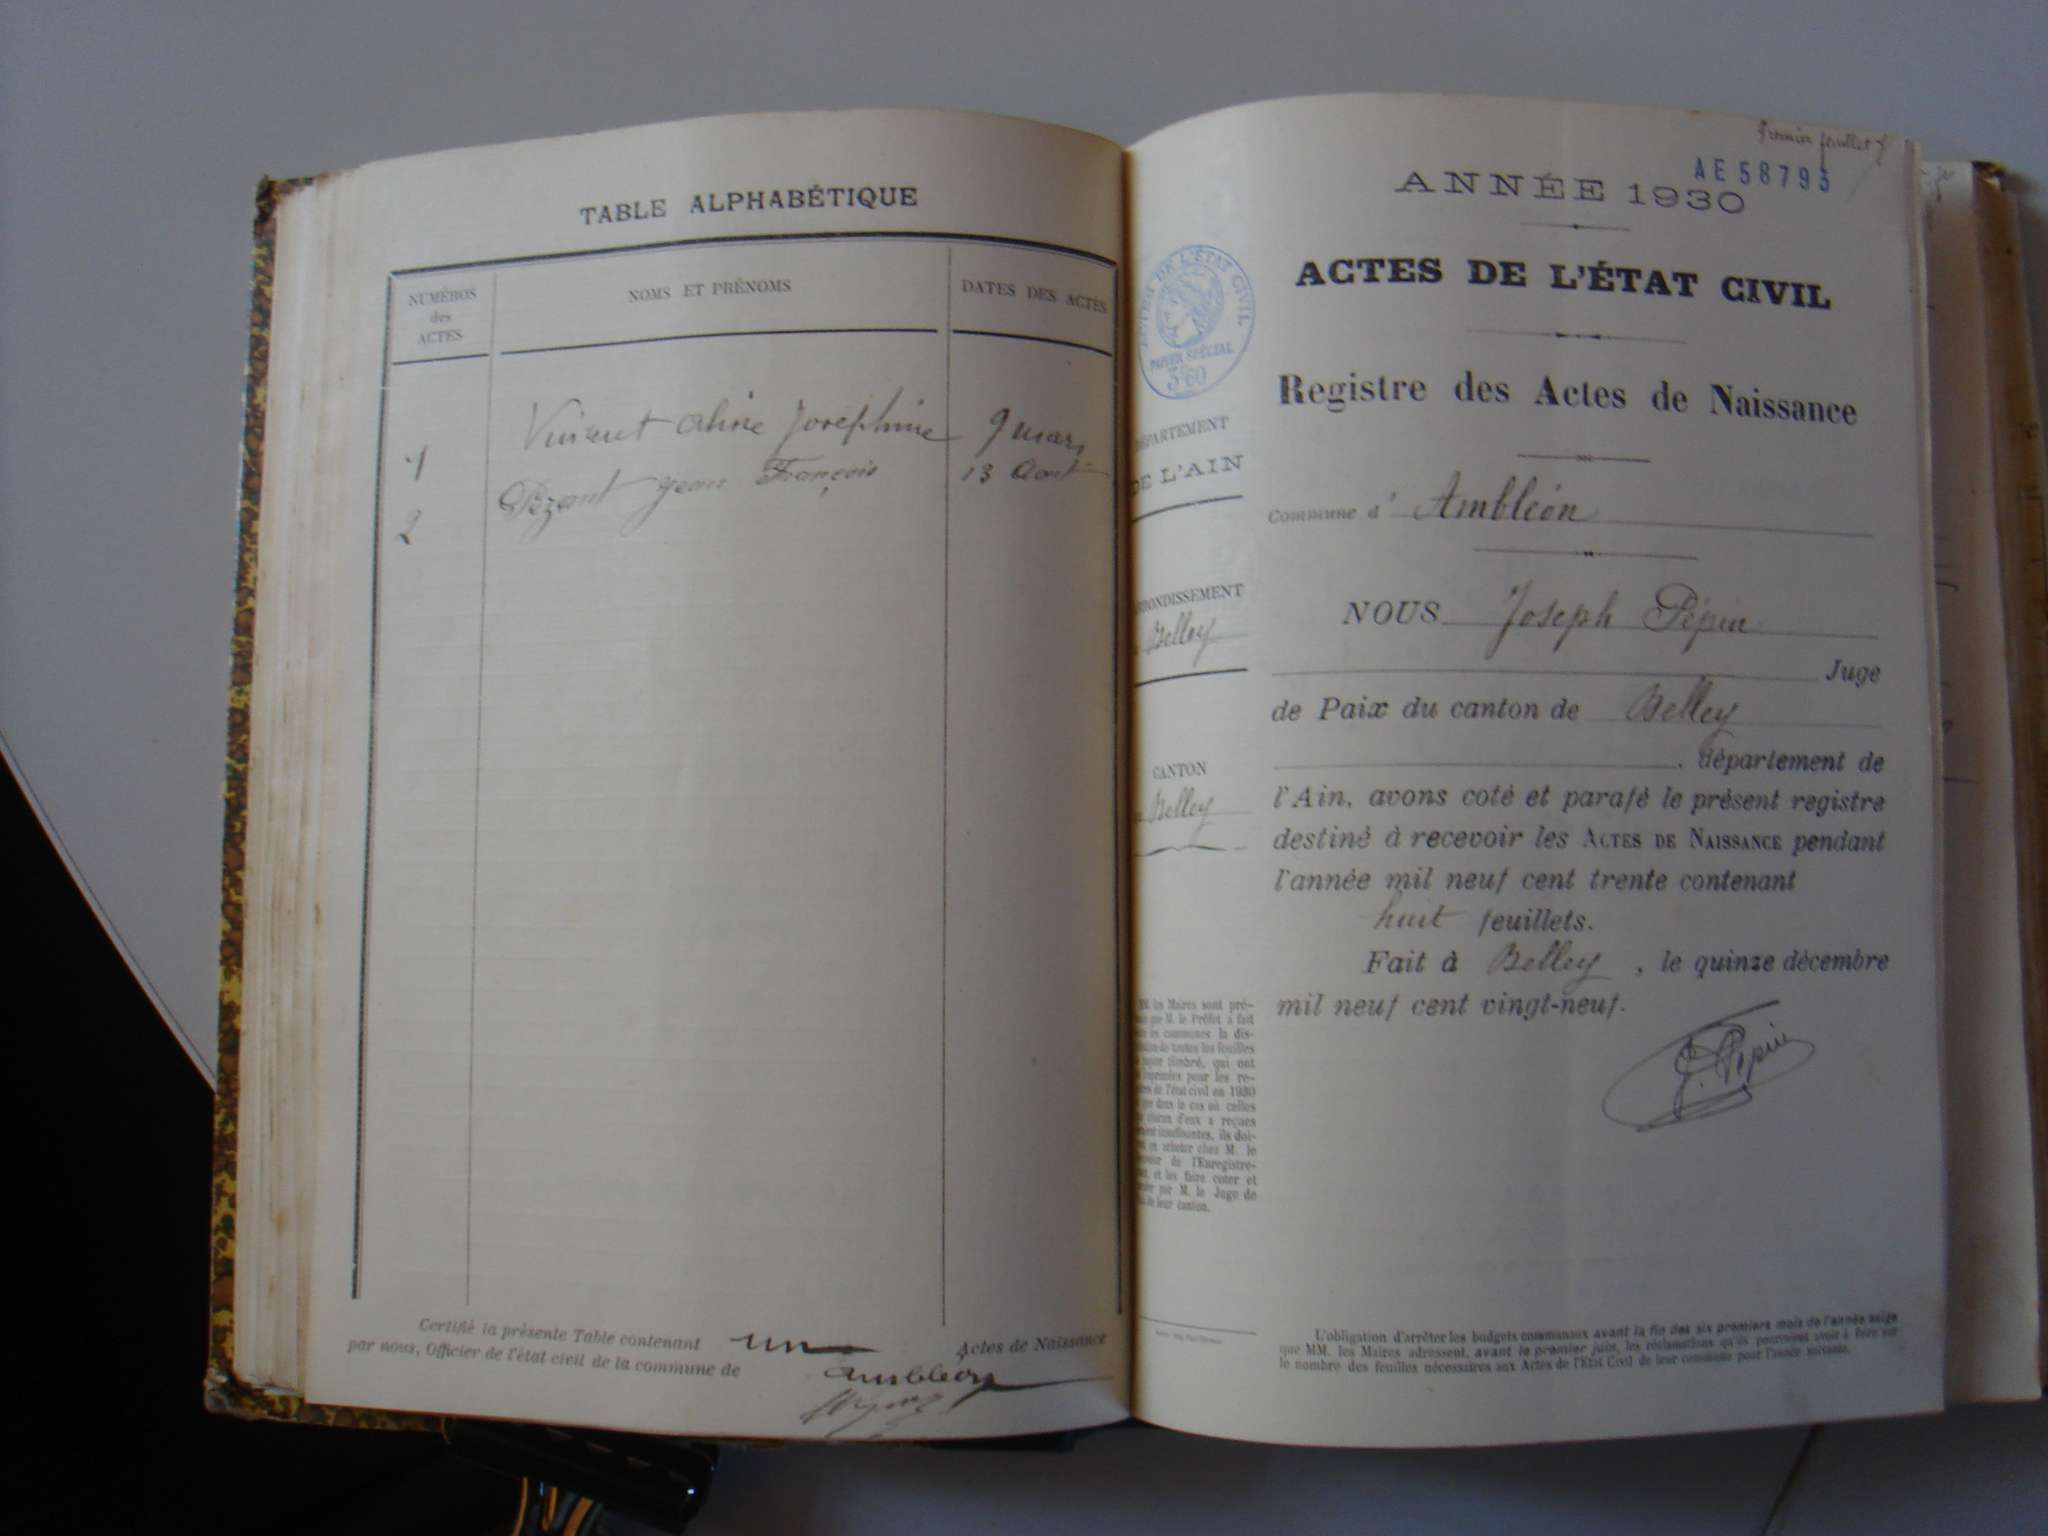 TABLE ALPHABÉTIQUE
NUMÉROS
des
ACTES
NOMS ET PRÉNOMS
DATES DES ACTES
1 Vincent Aline Joséphine 9 mars
2 Jean François 13 Aout
Certifié la présente Table contenant un Actes de Naissance
par nous, Officier de l'état civil de la commune de Ambléon
Premier feuillet
AE 58793
ANNÉE 1930
ACTES DE L'ÉTAT CIVIL
Registre des Actes de Naissance
DE L'ÉTAT CIVIL
PAPIER SPÉCIAL
3f60
DÉPARTEMENT
DE L'AIN
Commune d' Ambléon
ARRONDISSEMENT
Belley
NOUS Joseph Pépin
Juge
de Paix du canton de Belley
, département de
CANTON
Belley
l'Ain, avons coté et parafé le présent registre
destiné à recevoir les ACTES DE NAISSANCE pendant
l'année mil neuf cent trente contenant
huit feuillets.
Fait à Belley , le quinze décembre
mil neuf cent vingt-neuf.
J. Pépin
MM. les Maires sont pré-
que M. le Préfet a fait
les communes la dis-
de toutes les feuilles
timbré, qui ont
imprimées pour les re-
de l'état civil en 1930
que dans le cas où celles
d'eux a reçues
insuffisantes, ils doi-
acheter chez M. le
de l'Enregistre-
et les faire coter et
par M. le Juge de
de leur canton.
L'obligation d'arrêter les budgets communaux avant la fin des six premiers mois de l'année exige
que MM. les Maires adressent, avant le premier juin, les réclamations qu'ils pourraient avoir à faire sur
le nombre des feuilles nécessaires aux Actes de l'État Civil de leur commune pour l'année suivante.